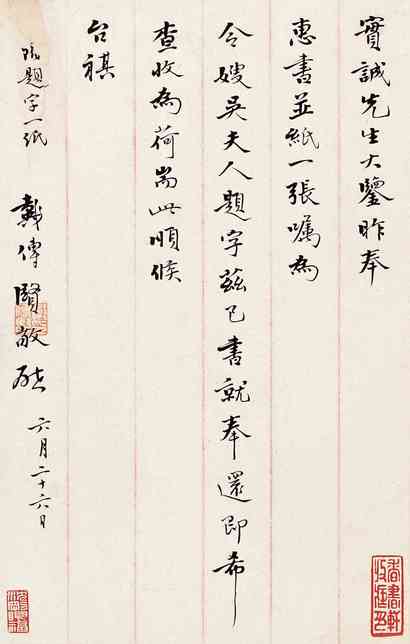 實誠先生大鑒昨奉
惠書並紙一張囑為
令嫂吳夫人題字茲已書就奉還即希
查收為荷耑此順候
台祺
戴傳賢敬啟
六月二十六日
附題字一紙